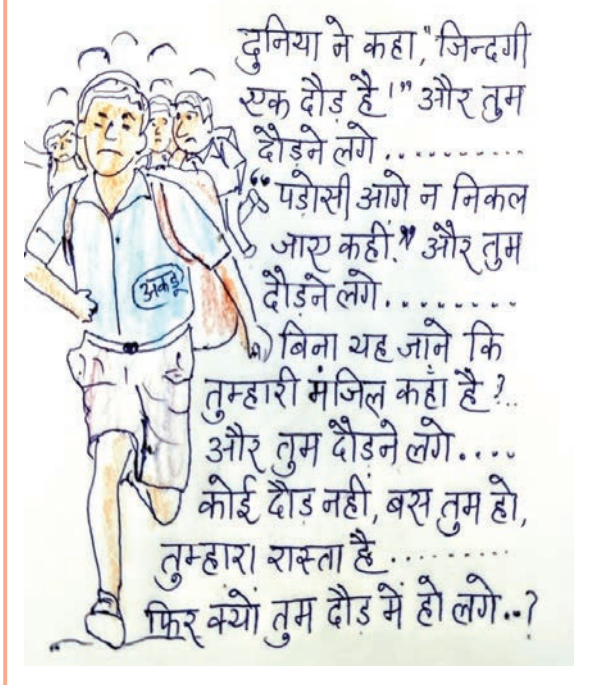 दुनिया ने कहा, "जिन्दगी
एक दौड़ है।" और तुम
दौड़ने लगे ..........
"पडोसी आगे न निकल
जाए कहीं।" और तुम
दौड़ने लगे .........
बिना यह जाने कि
तुम्हारी मंजिल कहाँ है ?..
और तुम दौड़ने लगे ....
कोई दौड़ नहीं, बस तुम हो,
तुम्हारा रास्ता है .........
फिर क्यों तुम दौड़ में हो लगे ..?
अकडू